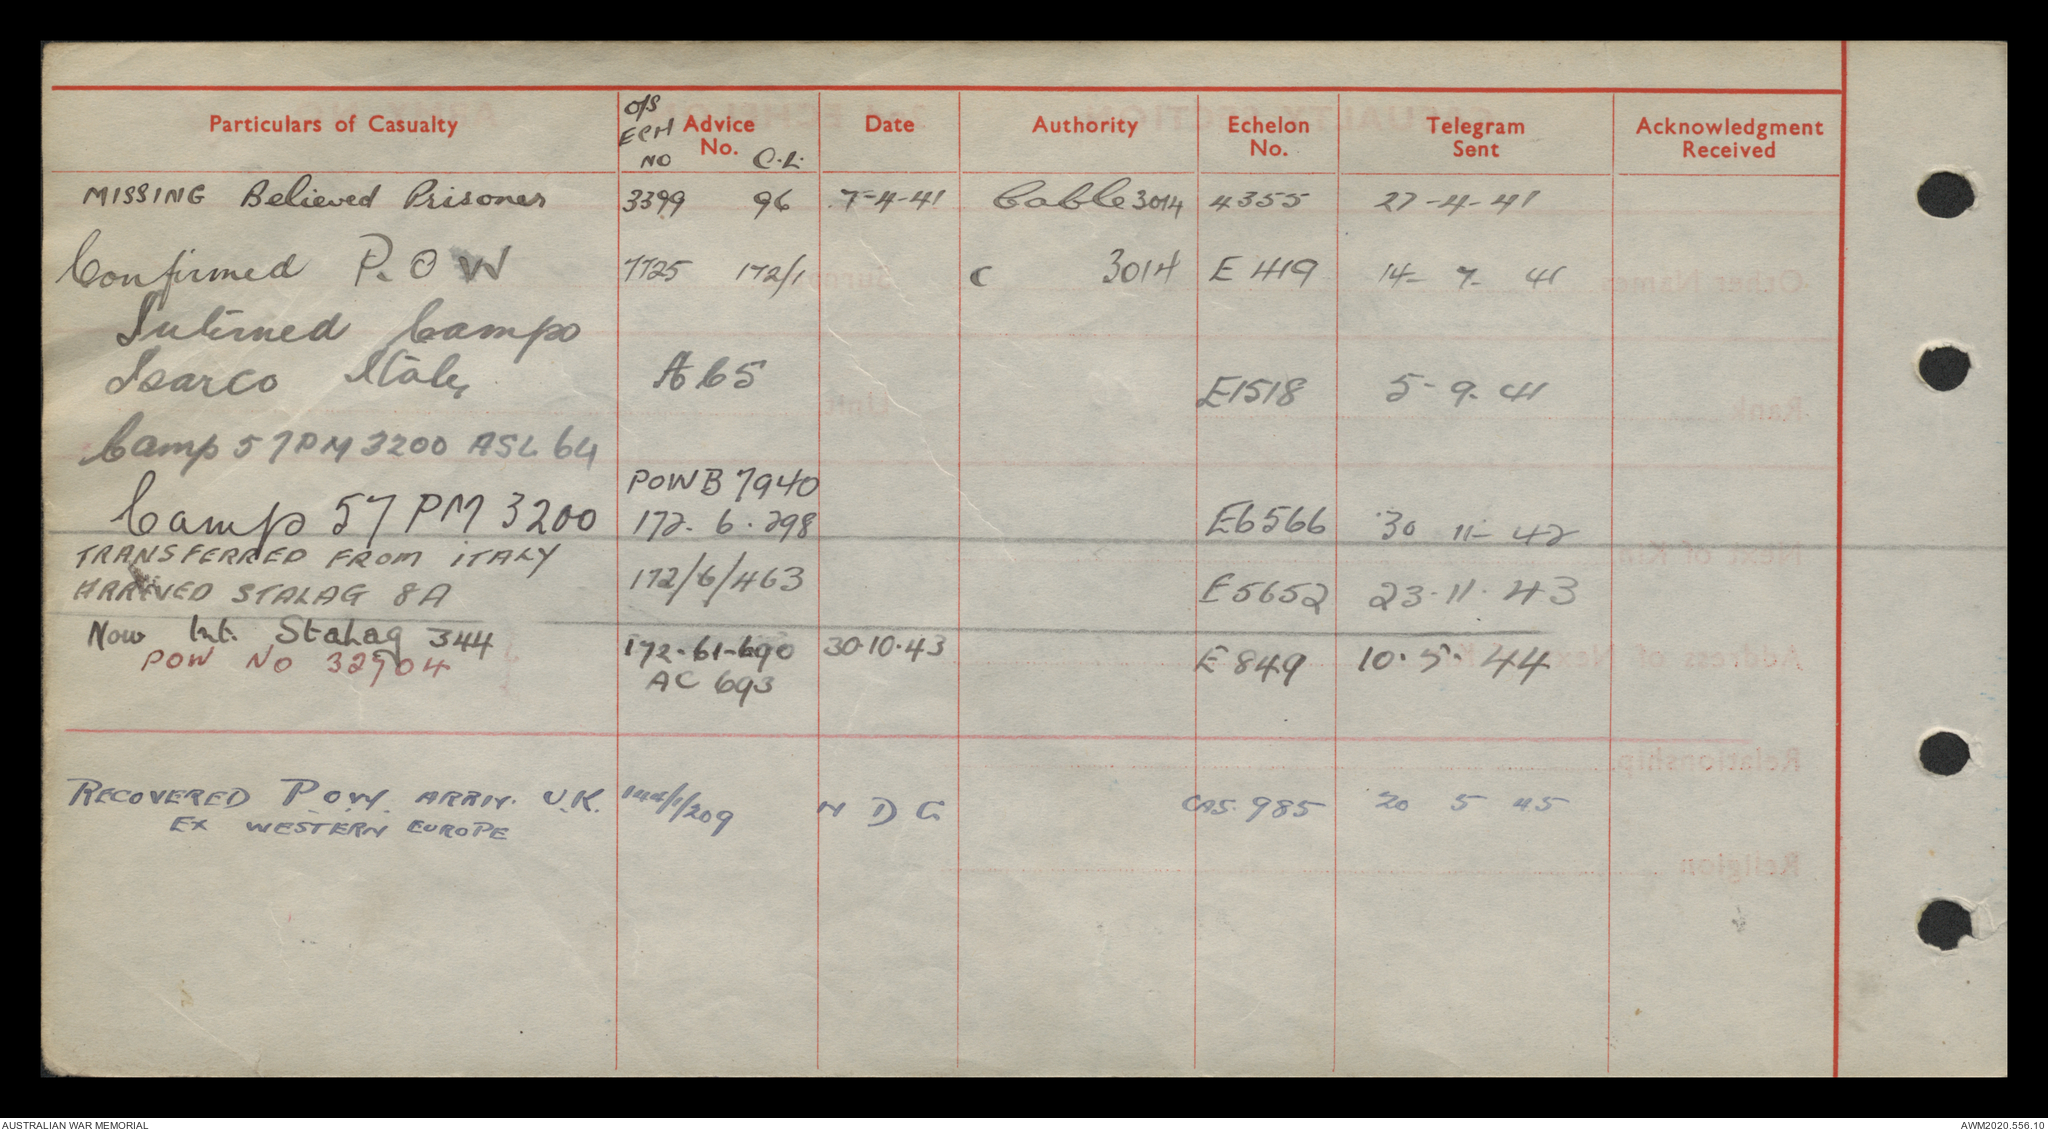 Particulars of Casualty O/S ECH NO Advice No. C.L. Date Authority Echelon No. Telegram Sent Acknowledgment Received
MISSING Believed Prisoner 3399 96 7-4-41 Cable 3014 4355 27-4-41
Confirmed P.O W 7725 172/1 C 3014 E 1419 14- 7- 41
Interned Campo
Isarco Italy A65 E1518 5-9-41
Camp 57 PM 3200 ASL 64
POWB 7940
Camp 57 PM 3200 172. 6. 298 E6566 30 11- 42
TRANSFERRED FROM ITALY
ARRIVED STALAG 8A 172/6/463 E5652 23.11.43
Now Int. Stalag 344 172-61-690 30.10.43 E 849 10.5.44
POW NO 32904 AC 693
RECOVERED P.O.W. ARRIV. U.K. /1/209 N D G CAS. 985 20 5 45
EX WESTERN EUROPE
AUSTRALIAN WAR MEMORIAL AWM2020.556.10